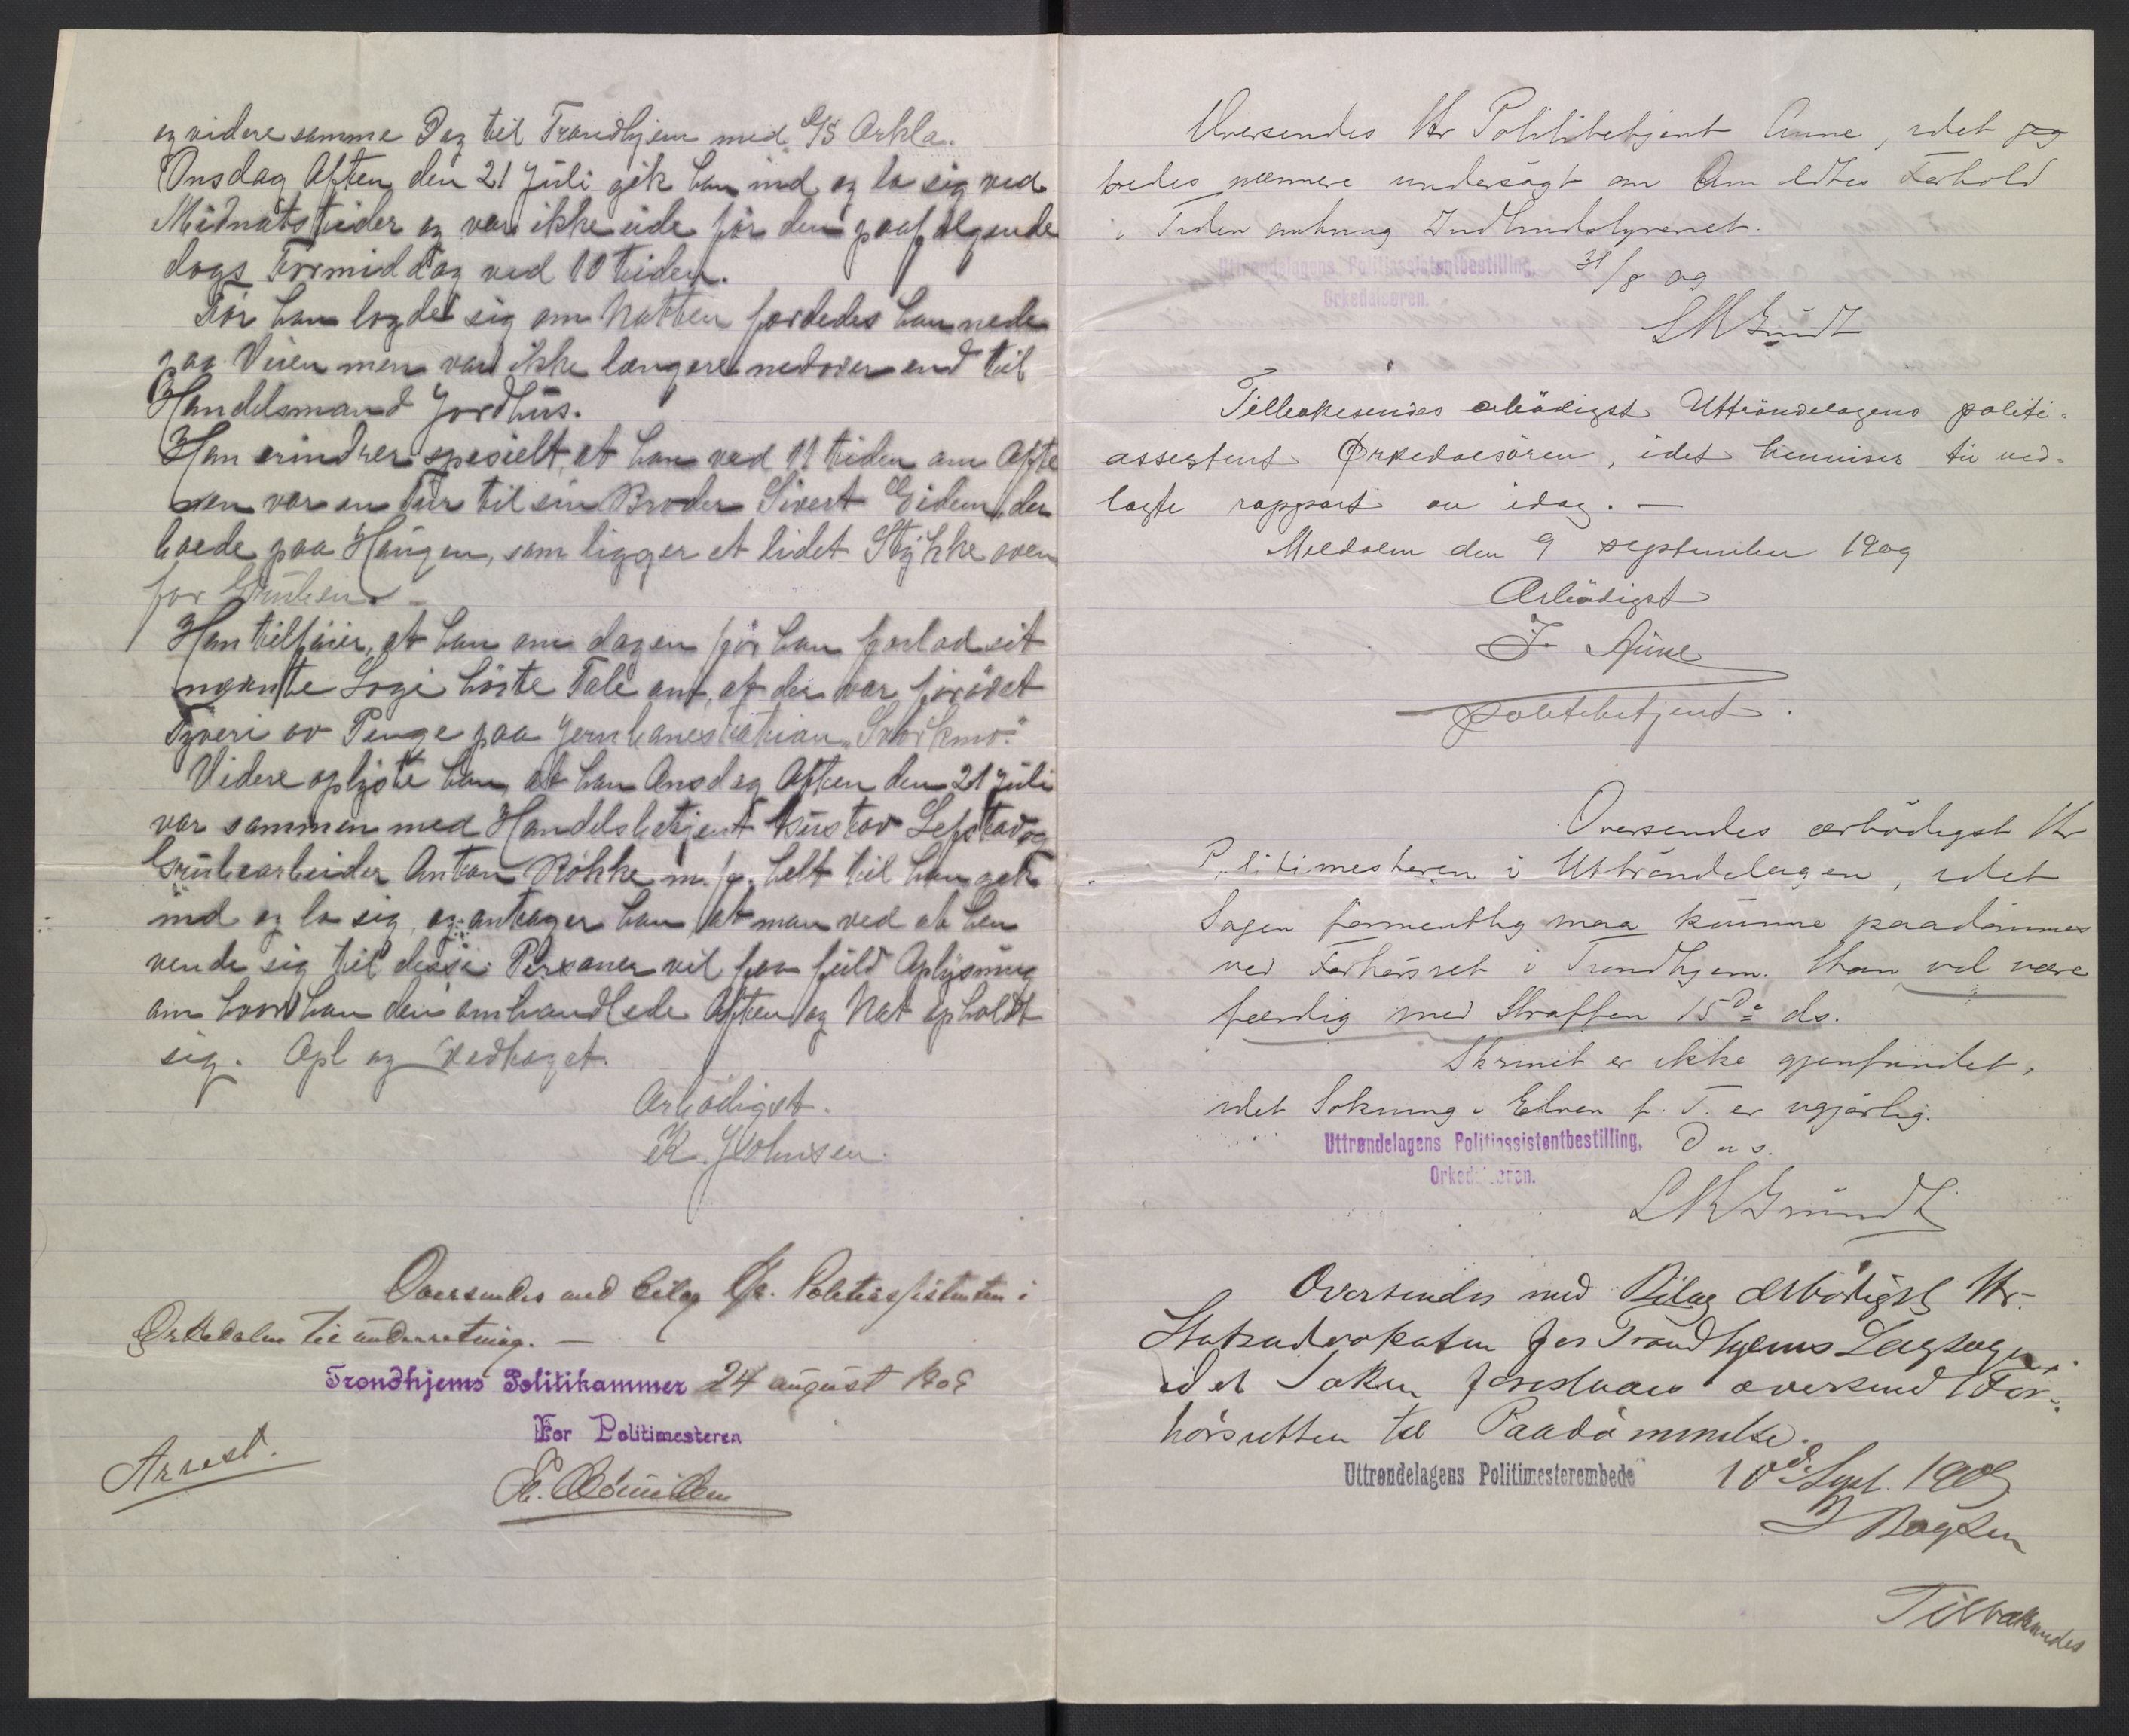 og videre samme Dag til Trondhjem med D/S Orkla.
Onsdag Aften den 21 Juli gik han ind og la sig ved
Midnatstider og var ikke ude før den paafølgende
dags Formiddag ved 10 tiden.
Før han lagde sig om Natten færdedes han nede
paa Veien men var ikke længere nedover end til
Handelsmand Jordhus.
Han erindrer spesielt, at han ved 11 tiden om Afte
nen var en Tur til sin Broder Sivert Eidem, der
boede paa Haugen, som ligger et lidet Stykke oven
for Gruben. –
Han tilføier, at han om dagen før han forlod sit
nævnte Logi hørte Tale om, at der var forøvet
Tyveri av Penge paa Jernbanestation „Svorkmo“.
Videre oplyste han, at han Onsdag Aften den 21 Juli
var sammen med Handelsbetjent Gustav Lefstad og
Grubearbeider Anton Røkke m. fl. helt til han gik
ind og la sig, og antager han, at man ved at hen
vende sig til disse Personer vil faa fuld Oplysning
om hvor han den omhandlede Aften og Nat opholdt
sig. Opl og Vedtaget.
Ærbødigst.
K. Johnsen.
Oversendes med bilag Hr. Politiassistenten i
Orkedalen til underretning. —
Trondhjems Politikammer 24 august 1909
For Politimesteren
Arrest.
Oversendes Hr Politibetjent Aune, idet jeg
bedes nærmere undersøgt om Anmeldtes Forhold
i Tiden omkring Indbrudstyveriet.
Uttrøndelagens Politiassistentbestilling, 31/8 09
Orkedalsøren.
LKGrundt
Tilbakesendes ærbødigst Uttrøndelagens politi-
assistent Ørkedalsøren, idet henvises til ved-
lagte rapport av idag. —
Meldalen den 9 september 1909
Ærbødigst
J. Aune
politibetjent.
Oversendes ærbødigst Hr
Politimesteren i Uttrøndelagen, idet
Sagen formentlig maa kunne paadømmes
ved Forhørsret i Trondhjem. Han vil være
færdig med Straffen 15de ds.
Skrinet er ikke gjenfundet,
idet Sokning i Elven p. T. er ugjørlig.
Uttrøndelagens Politiassistentbestilling, D u s.
Orkedalsøren.
LKGrundt
Oversendes med Bilag ærbødigst Hr.
Statsadvokaten for Trondhjems Lagsogn
idet Saken foreslaaes oversendt For-
hørsretten til Paadømmelse.
Uttrøndelagens Politimesterembede 10de Sept. 1909
Tilbakesendes